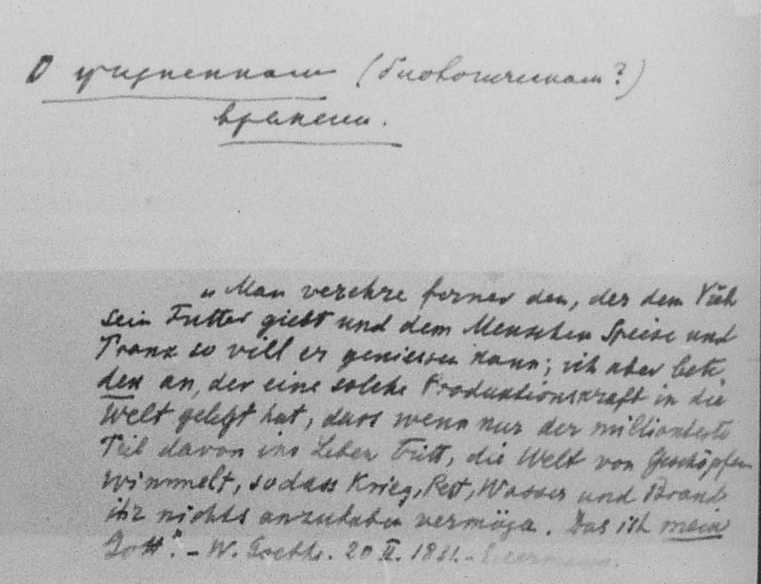 О жизненном (биологическом?)
времени.
„Man verehre ferner den, der dem Vieh
sein Futter giebt und dem Menschen Speise und
Trank so vill er geniessen kann; ich aber bete
den an, der eine solche Produktionskraft in die
Welt gelegt hat, dass wenn nur der millionteste
Teil davon ins Leben tritt, die Welt von Geschöpfen
wimmelt, sodass Krieg, Pest, Wasser und Brand
ihr nichts anzuhaben vermögen. Das ist mein
Gott." – W. Goethe. 20 II. 1831. – Eckermann.